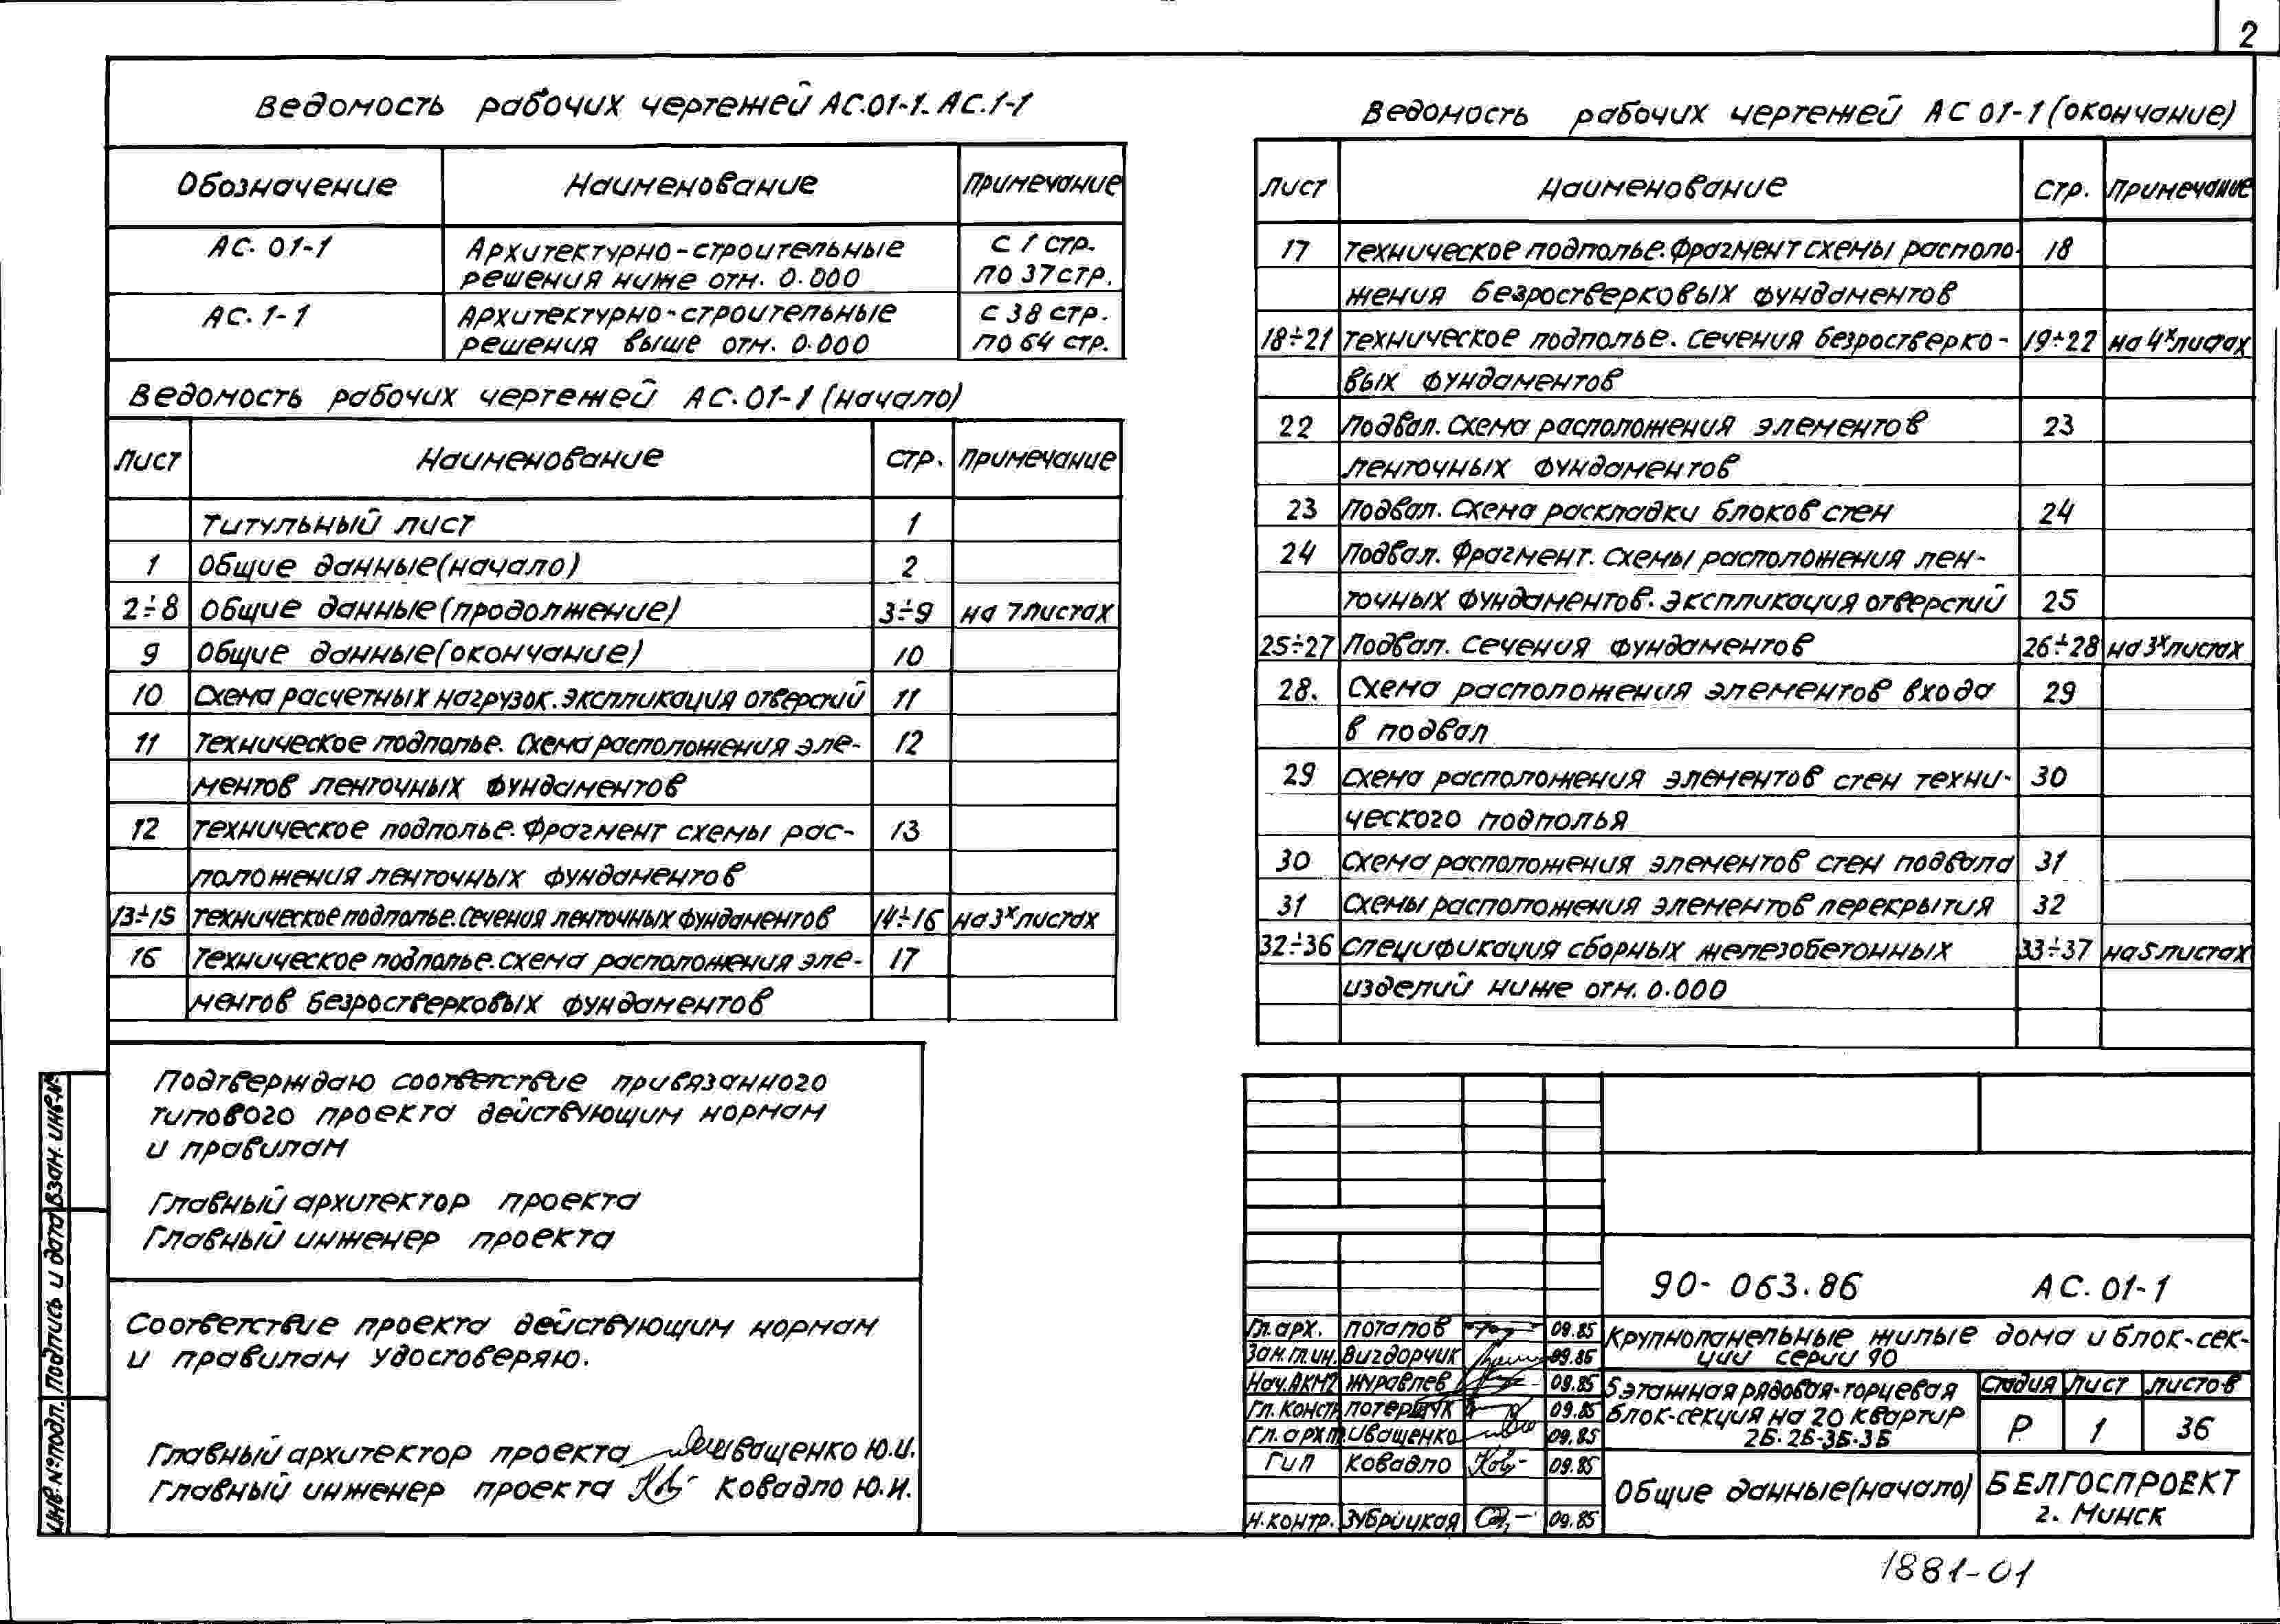 2
Ведомость рабочих чертежей АС.01-1. АС.1-1
Обозначение Наименование Примечание
АС. 01-1 Архитектурно-строительные с 1 стр.
решения ниже отм. 0.000 по 37 стр.
АС. 1-1 Архитектурно-строительные с 38 стр.
решения выше отм. 0.000 по 64 стр.
Ведомость рабочих чертежей АС.01-1 (начало)
Лист Наименование Стр. Примечание
Титульный лист 1
1 Общие данные (начало) 2
2÷8 Общие данные (продолжение) 3÷9 на 7 листах
9 Общие данные (окончание) 10
10 Схема расчетных нагрузок. Экспликация отверстий 11
11 Техническое подполье. Схема расположения эле- 12
ментов ленточных фундаментов
12 Техническое подполье. Фрагмент схемы рас- 13
положения ленточных фундаментов
13÷15 Техническое подполье. Сечения ленточных фундаментов 14÷16 на 3х листах
16 Техническое подполье. Схема расположения эле- 17
ментов безростверковых фундаментов
Ведомость рабочих чертежей АС 01-1 (окончание)
Лист Наименование Стр. Примечание
17 Техническое подполье. Фрагмент схемы располо- 18
жения безростверковых фундаментов
18÷21 Техническое подполье. Сечения безростверко- 19÷22 на 4х листах
вых фундаментов
22 Подвал. Схема расположения элементов 23
ленточных фундаментов
23 Подвал. Схема раскладки блоков стен 24
24 Подвал. Фрагмент. схемы расположения лен-
точных фундаментов. Экспликация отверстий 25
25÷27 Подвал. Сечения фундаментов 26÷28 на 3х листах
28. Схема расположения элементов входа 29
в подвал
29 Схема расположения элементов стен техни- 30
ческого подполья
30 Схема расположения элементов стен подвала 31
31 Схемы расположения элементов перекрытия 32
32÷36 Спецификация сборных железобетонных 33÷37 на 5 листах
изделий ниже отм. 0.000
Подтверждаю соответствие привязанного
типового проекта действующим нормам
и правилам
Главный архитектор проекта
Главный инженер проекта
Соответствие проекта действующим нормам
и правилам удостоверяю.
Главный архитектор проекта Иващенко Ю.И.
Главный инженер проекта Ковадло Ю.И.
Инв. № подл. Подпись и дата Взам. инв. №
90-063.86 АС. 01-1
Гл. арх. Потапов 09.85
Зам. гл. ин. Вигдорчик 09.85
Нач. АКМ2 Журавлев 09.85
Гл. констр. Потерщук 09.85
Гл. арх. п. Иващенко 09.85
Гип Ковадло 09.85
Н. контр. Зубрицкая 09.85
Крупнопанельные жилые дома и блок-сек-
ции серии 90
5 этажная рядовая-торцевая
блок-секция на 20 квартир
2Б-2Б-3Б-3Б
Стадия Лист Листов
Р 1 36
Общие данные (начало)
БЕЛГОСПРОЕКТ
г. Минск
1881-01